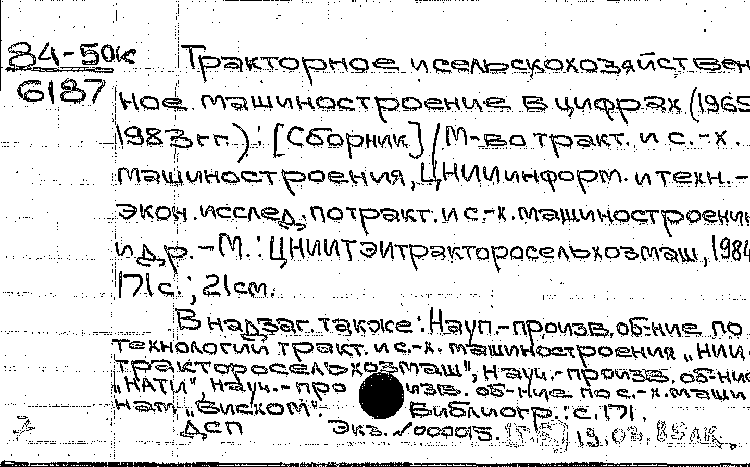 84-50к Тракторное и сельскохозяйствен
6187 ное машиностроение в цифрах (1965
1983 гг.): [Сборник] / М-во тракт. и с.-х.
машиностроения, ЦНИИ информ. и техн.-
экон. исслед. по тракт. и с.-х. машиностроени
и др. - М.: ЦНИИТЭИтракторосельхозмаш, 1984
171 с.; 21 см.
В надзаг. также: Науч.-произв. об-ние по
технологии тракт. и с.-х. машиностроения „НИИ
тракторосельхозмаш", Науч.-произв. об-ние
„НАТИ", Науч.-произв. об-ние по с.-х. маши
нам „Виском". Библиогр.: с. 171.
ДСП Экз. N 000015. 19.03.85